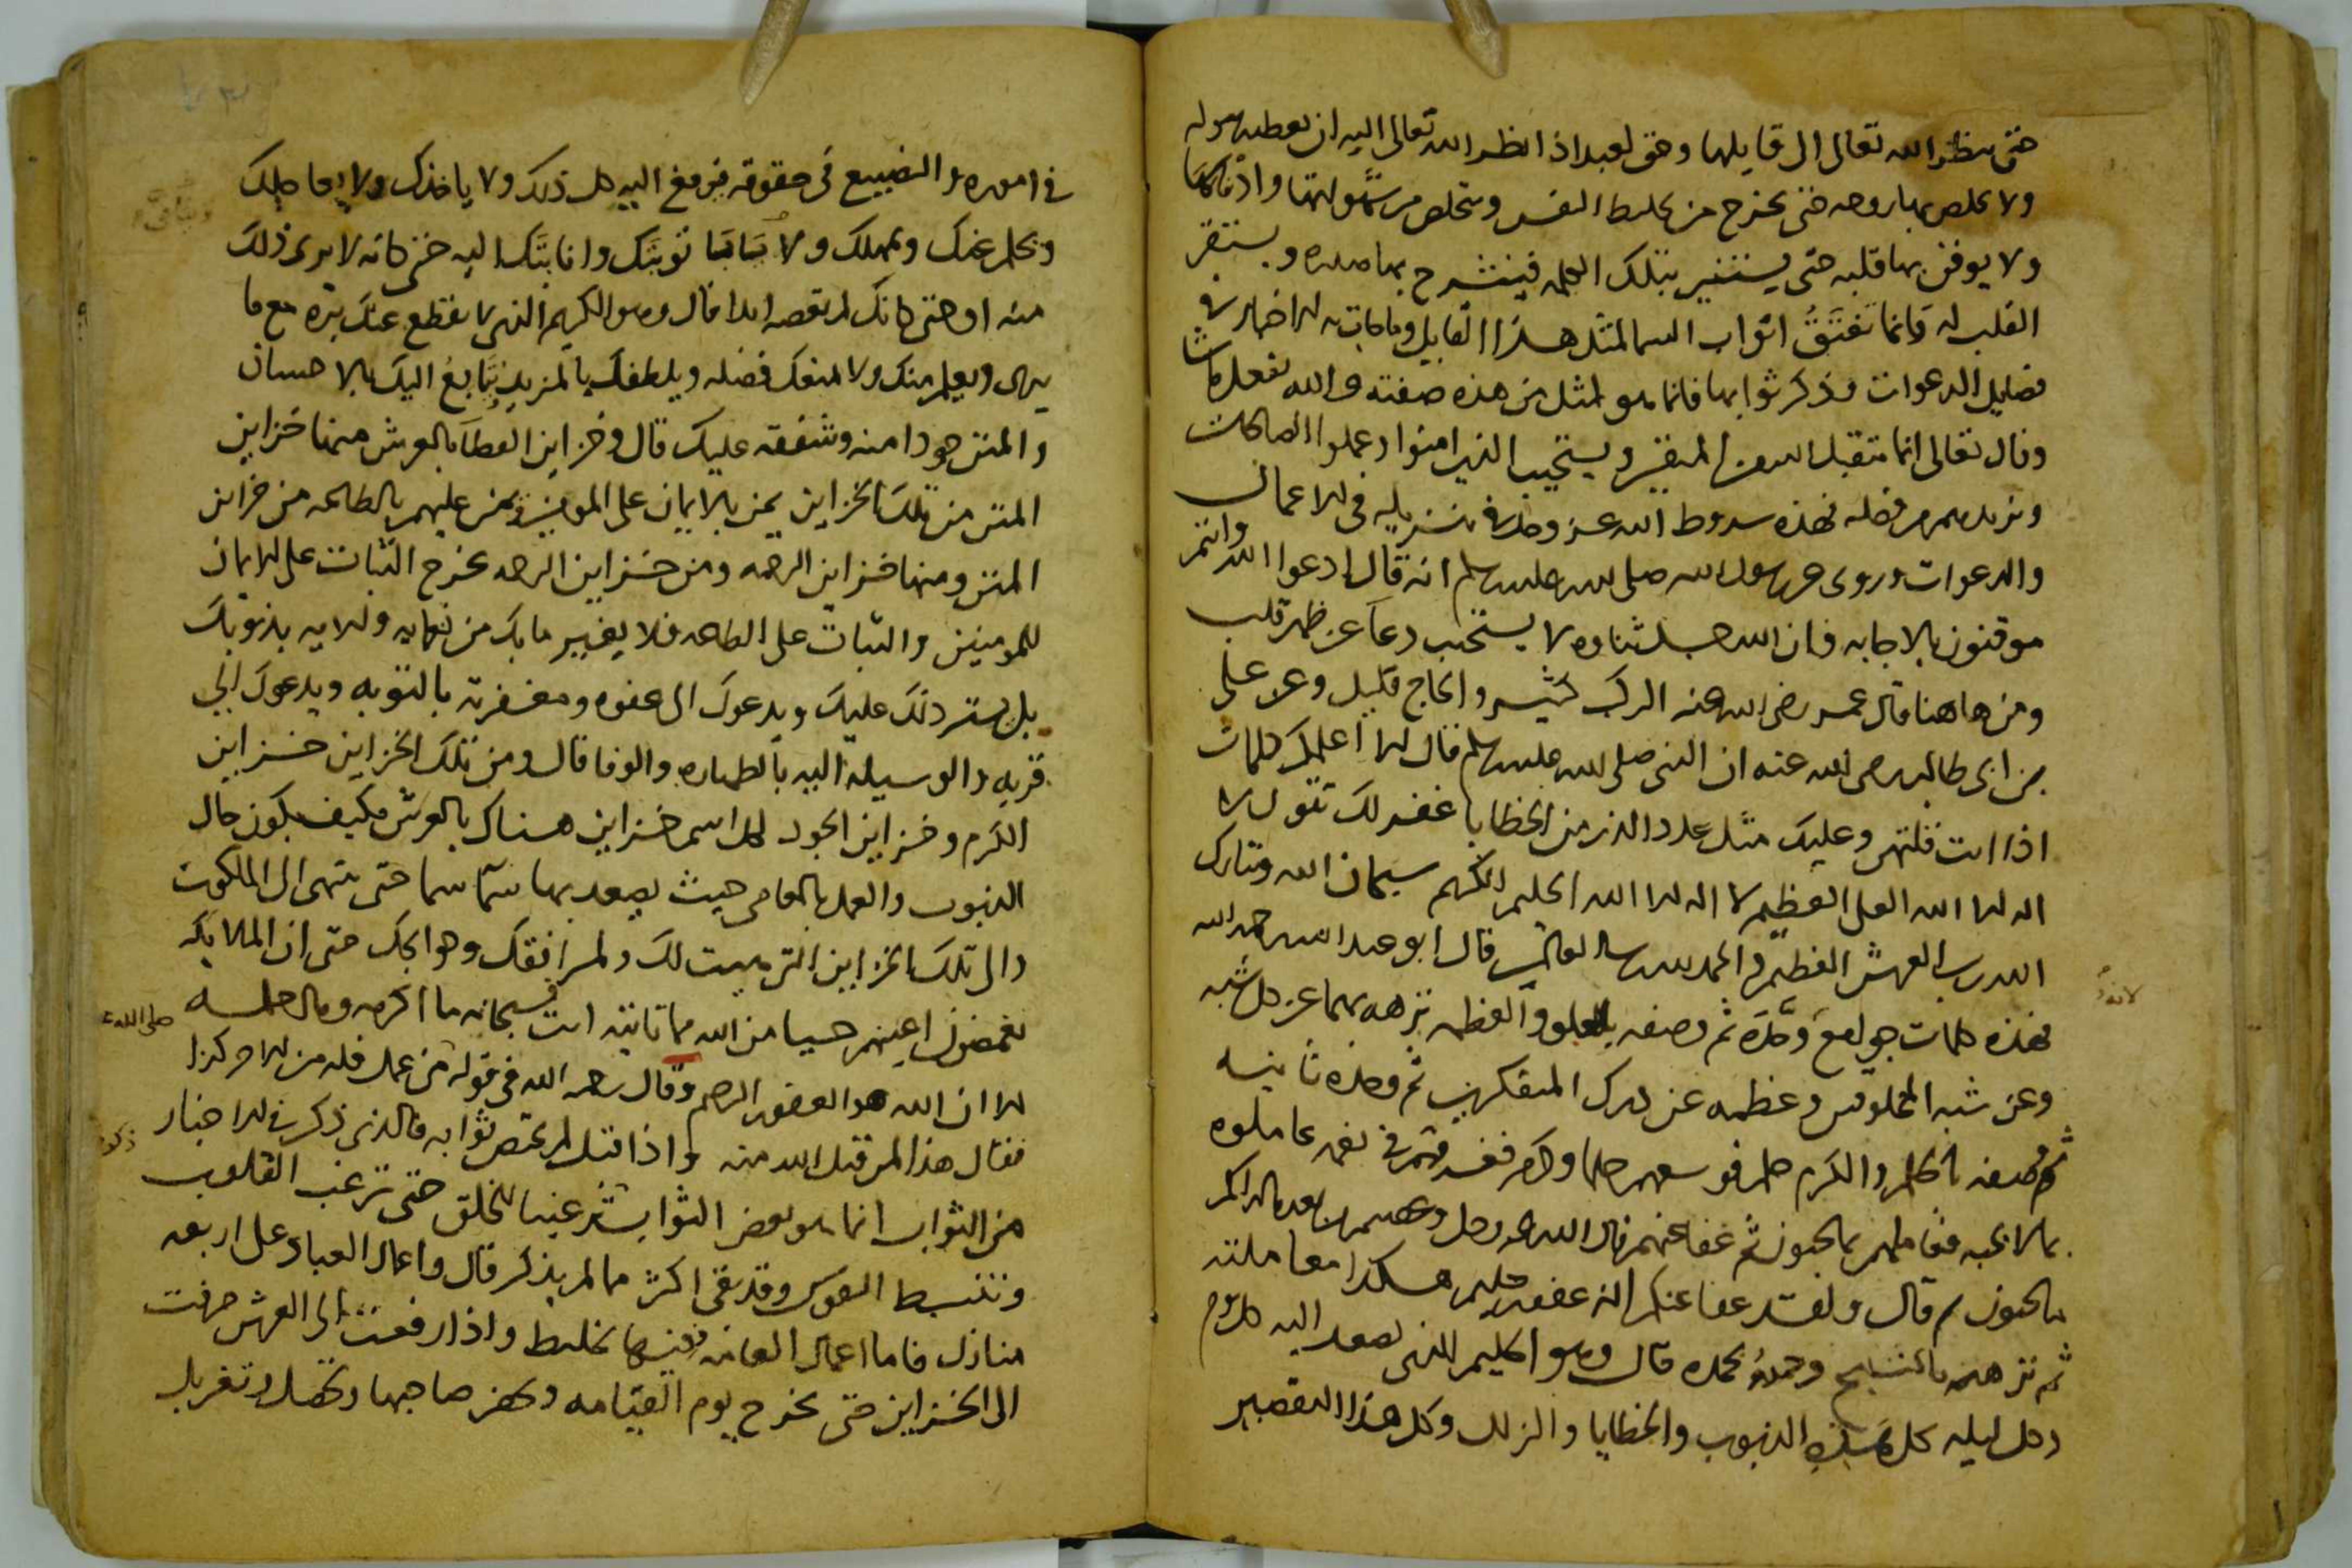 حتى ينظر الله تعالى الى قايلها وحق لعبد اذا نظر الله تعالى اليه ان يعطيه سوله
ولا يخلص بها روحه حتى يخرج من تخليط النفس ويتخلص من
ولا يوقن بها قلبه حتى يستنير بتلك الكلمه فينشرح بها صدره ويستقر
القلب له فانما تفتق ابواب السما لمثل هذا القايل وما جات به الاخبار في
فضايل الدعوات وذكر ثوابها فانما هو لمثل من هذه صفته والله يفعل ما يشا
وقال تعالى انما يتقبل الله من المتقين ويستجيب الذين امنوا وعملوا الصالحات
ويزيدهم من فضله فهذه شروط الله عز وجل في تنزيله في الاعمال
والدعوات وروى عن رسول الله صلى الله عليه وسلم انه قال ادعوا الله وانتم
موقنون بالاجابه فان الله جل ثناوه لا يستجيب دعا عن ظهر قلب
ومن هاهنا قال عمر رضى الله عنه الركب كثير والحاج قليل وعن على
بن ابى طالب رضى الله عنه ان النبى صلى الله عليه وسلم قال الا اعلمك كلمات
اذا انت قلتهن وعليك مثل عدد الذر من الخطايا غفر لك تقول لا
اله الا الله العلى العظيم لا اله الا الله الحليم الكريم سبحان الله وتبارك
الله رب العرش العظيم والحمد لله رب العالمين قال ابو عبد الله رحمه الله
فهذه كلمات جوامع وحده ثم وصفه بالعلو والعظمه نزهه بهما عن كل شبه
وعن شبه المخلوقين وعظمه عن درك المتفكرين ثم وحده ثانيه
ثم وصفه بالحلم والكرم حلم فوسعهم حلما وكرم فغمرهم في نعمه عاملوه
بما لا يحبه فعاملهم بما يحبون ثم عفا عنهم قال الله عز وجل وعصيتم من بعد ما اراكم
ما تحبون ثم قال ولقد عفا عنكم ان غفور حليم هكذا معاملته
ثم نزهه بالتسبيح وحمده بحمده قال وهو الحليم الذى يصعد اليه كل يوم
وكل ليله كل هذه الذنوب والخطايا والزلل وكل هذا التقصير
لانه
في اموره والتضييع في حقوقه يرفع اليه كل ذلك ولا ياخذك ولا يعاجلك
ويحلم عنك ويمهلك ولا توبتك وانابتك اليه حتى كانه لا يرى ذلك
منه او حتى كانك لم تعصه ابدا قال وهو الكريم الذى لا يقطع عنك بره مع ما
يرى ويعلم منك ولا يمنعك فضله ويلطفك بالمزيد يتابع اليك بالاحسان
والمنن جودا منه وشفقه عليك قال وخزاين العطا بالعرش منها خزاين
المنن من تلك الخزاين يمن بالايمان على المومنين ويمن عليهم بالطاعه من خزاين
المنن ومنها خزاين الرحمه ومن خزاين الرحمه يخرج الثبات على الايمان
للمومنين والثبات على الطاعه فلا يغيير ما بك من نعمايه والايه بذنوبك
بل يستر ذلك عليك ويدعوك الى عفوه ومغفرته بالتوبه ويدعوك الى
قربه والوسيله اليه بالطهاره والوفا قال ومن تلك الخزاين خزاين
الكرم وخزاين الجود لكل اسم خزاين هناك بالعرش فكيف يكون حال
الذنوب والعمل بالمعاصى حيث يصعد بها سما سما حتى ينتهى الى الملكوت
والى تلك الخزاين التى هييت لك ولمرافقك وحوايجك حتى ان الملايكه
يغمضون اعينهم حيا من الله مما تاتيه انت فسبحانه ما اكرمه وما احلمه
الا ان الله هو الغفور الرحيم وقال رحمه الله في قوله من عمل فله من الاجر كذا
فقال هذا لمن قبل الله منه واذا قبل لم يحص ثوابه فالذى ذكر في الاخبار
من الثواب انما هو بعض الثواب ترغيبا للخلق حتى ترغب القلوب
وتنبسط النفوس وقد بقى اكثر مما لم يذكر قال واعمال العباد على اربعه
منازل فاما اعمال العامه ففيها تخليط واذا رفعت الى العرش صرفت
الى الخزاين حتى يخرج يوم القيامه ويحضر صاحبها وتحصل وتغربل
صلى الله